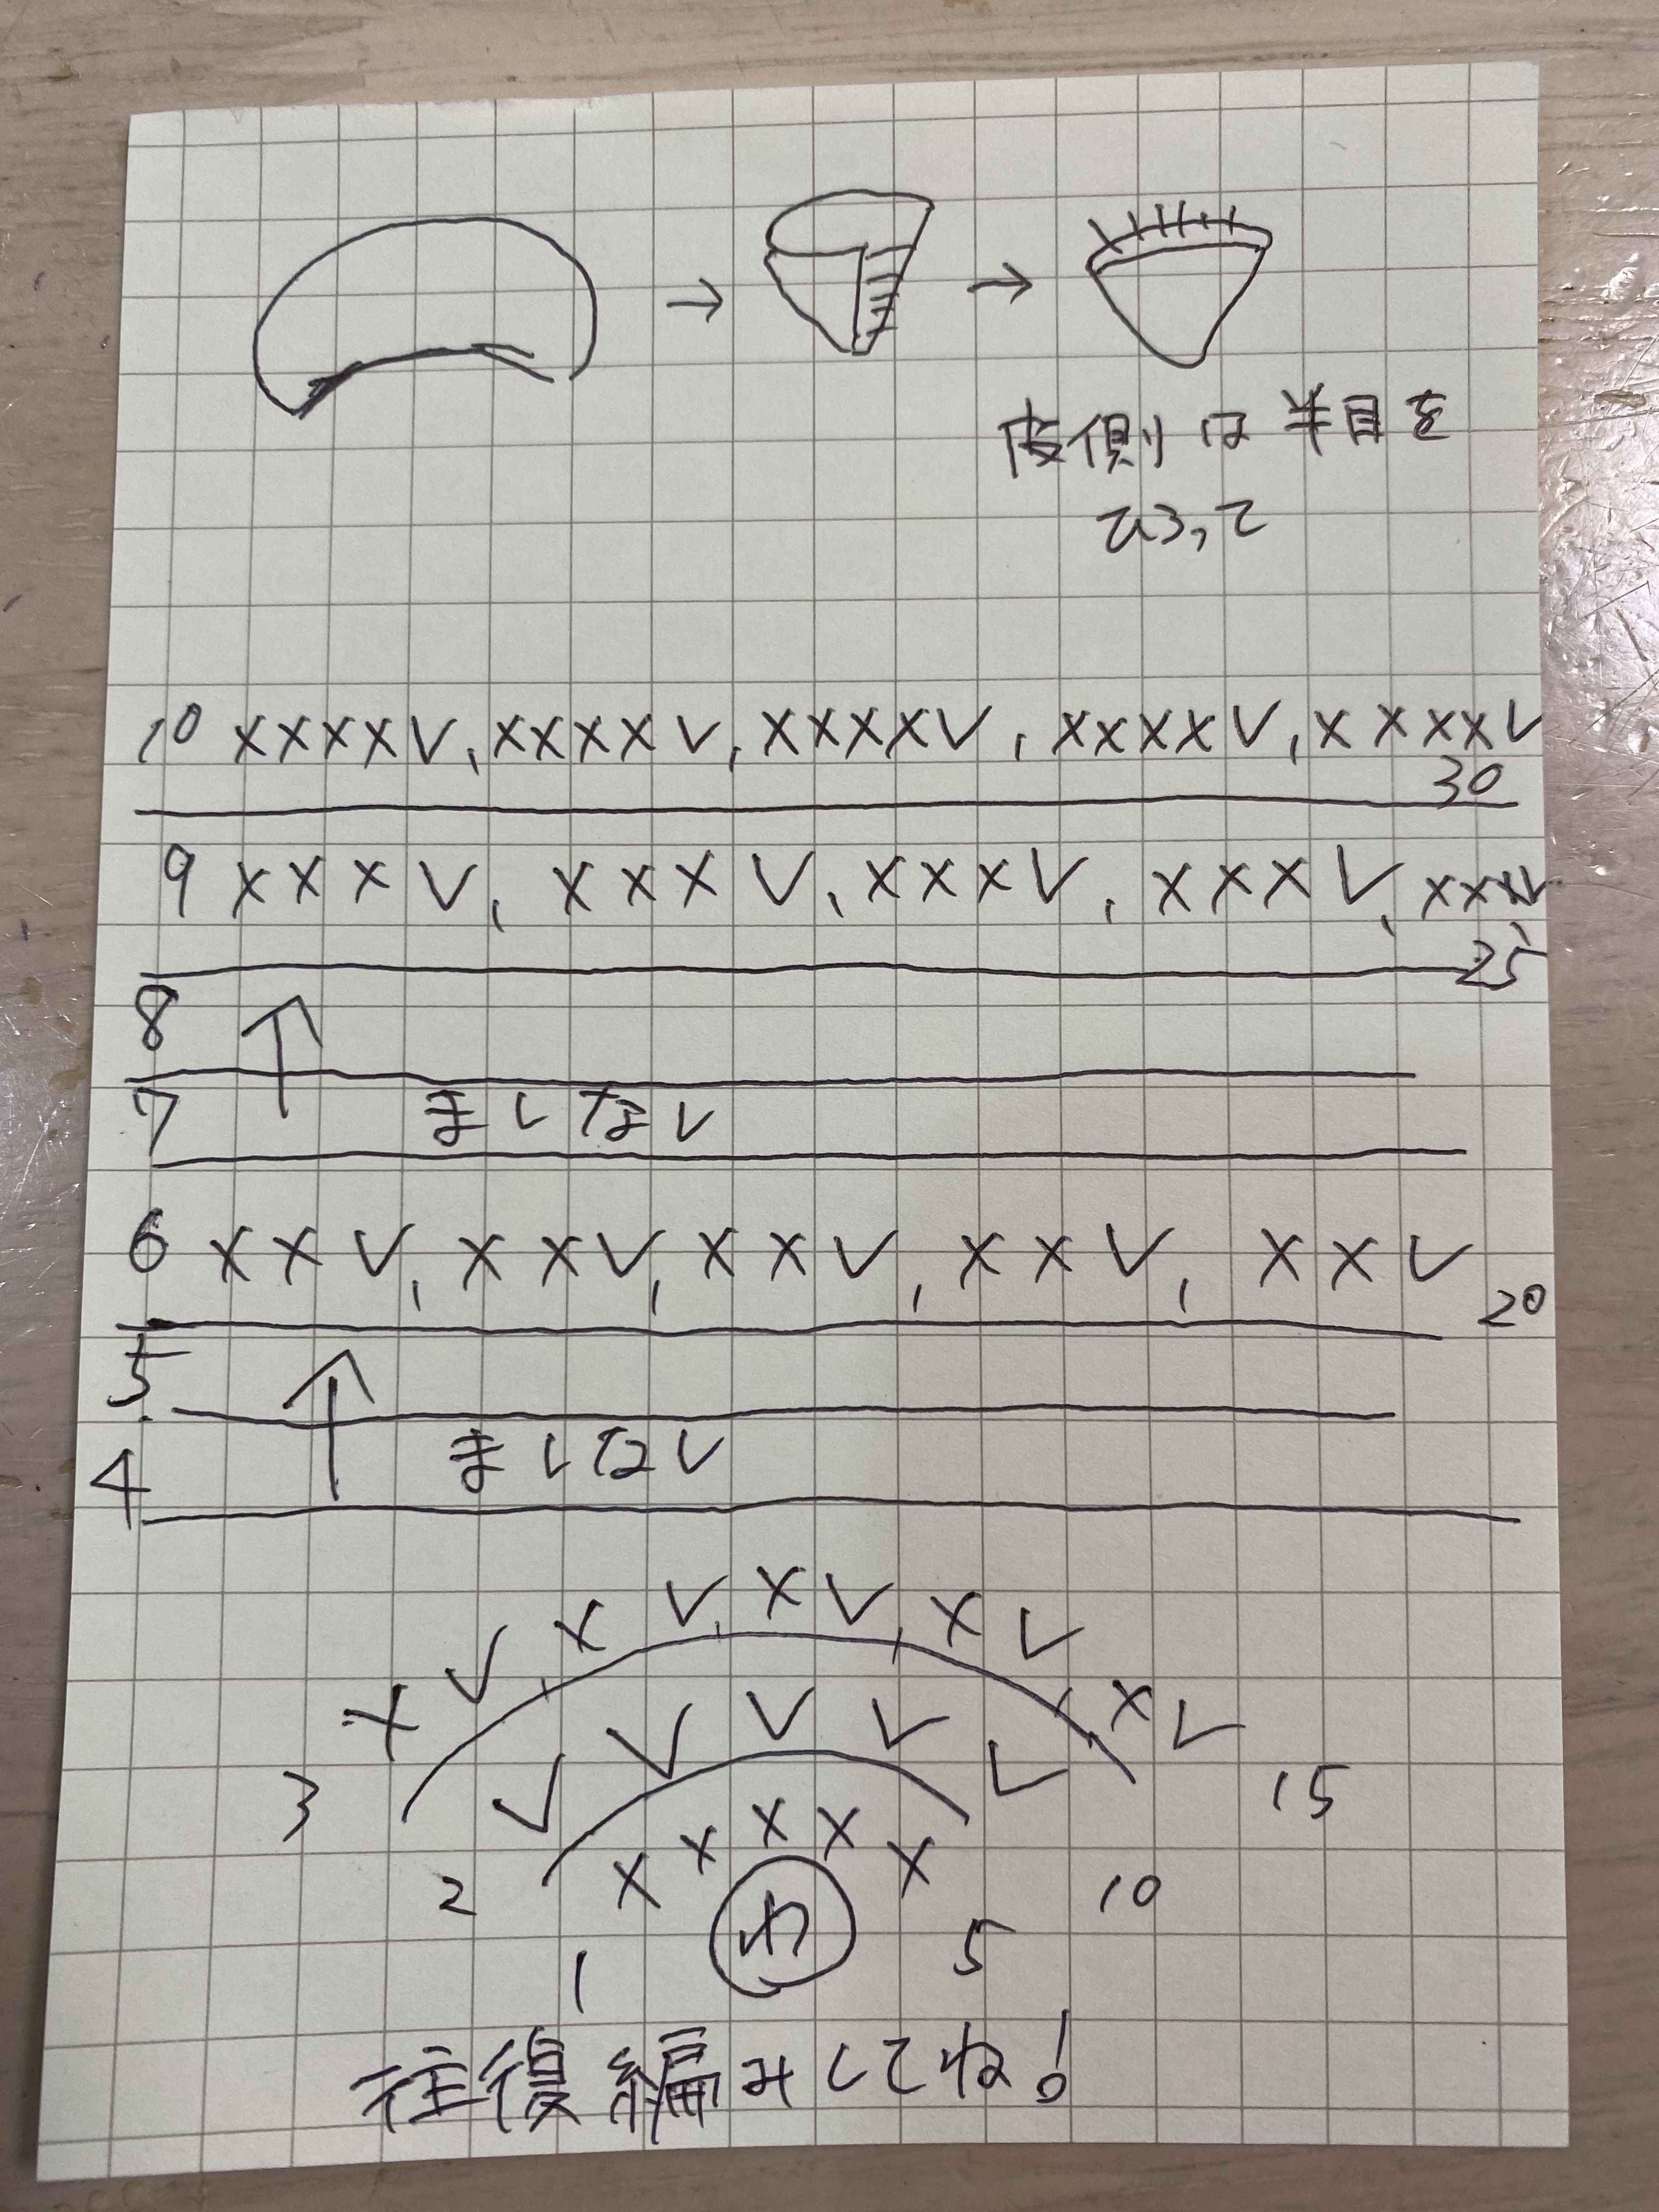 皮側は半目を
ひろって
10 XXXXV, XXXXV, XXXXV, XXXXV, XXXXV
30
9 XXXV, XXXV, XXXV, XXXV, XXXV
25
8 ↑
7 ましなし
6 XXV, XXV, XXV, XXV, XXV
20
5 ↑
4 ましなし
XV, XV, XV, XV, XV
3 15
VVVVV
2 10
XXXXX
わ
1 5
往復編みしてね!